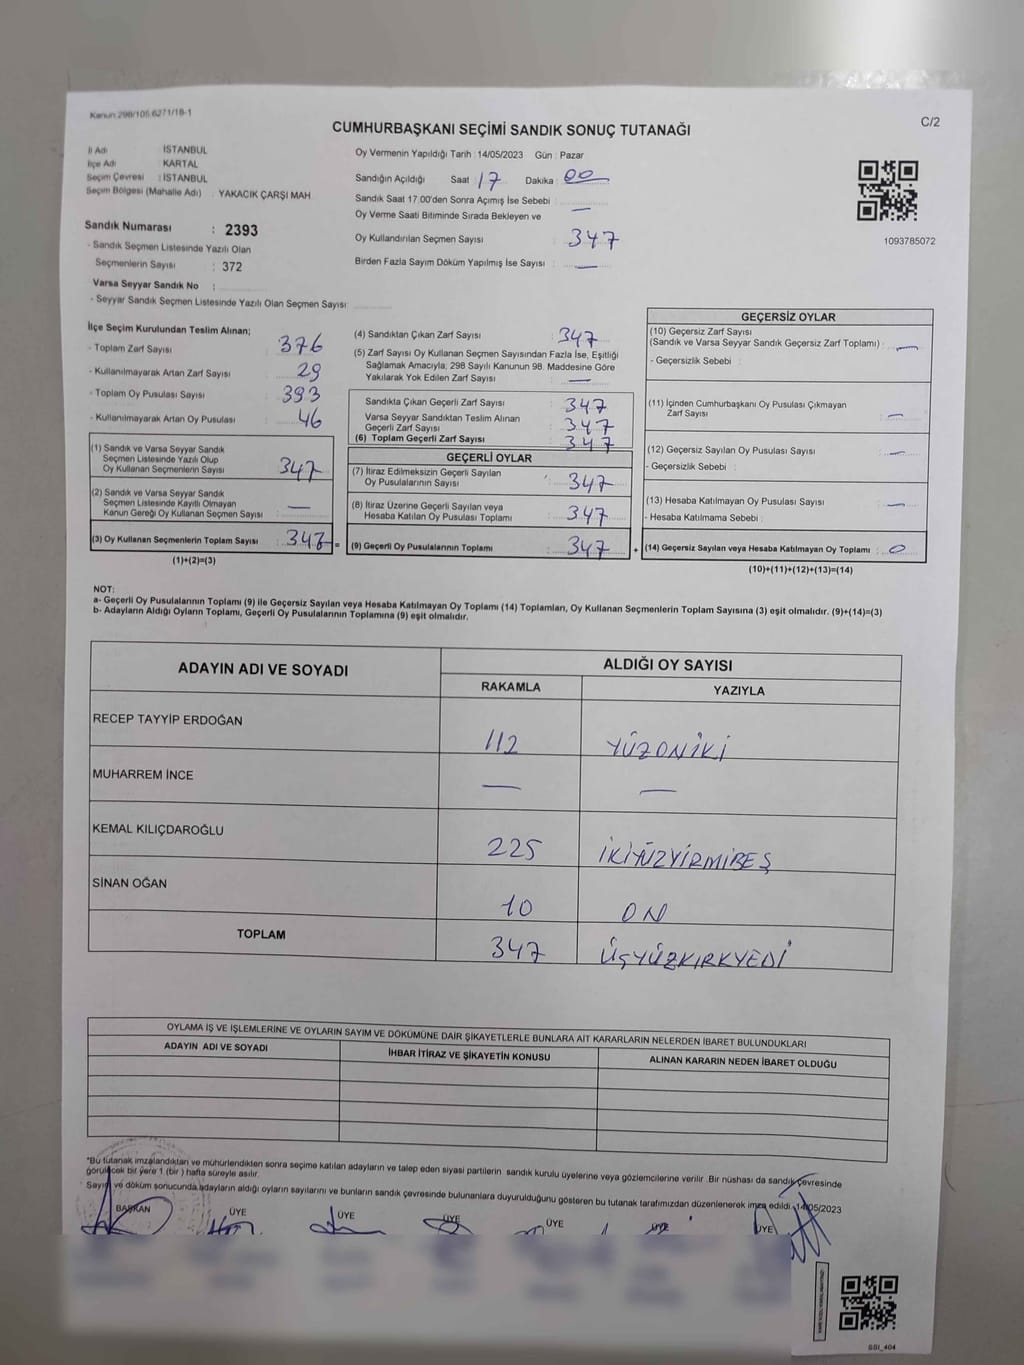 Kanun 298/105 6271/18-1
C/2
CUMHURBAŞKANI SEÇİMİ SANDIK SONUÇ TUTANAĞI
İl Adı : İSTANBUL
İlçe Adı : KARTAL
Seçim Çevresi : İSTANBUL
Seçim Bölgesi (Mahalle Adı) : YAKACIK ÇARŞI MAH
Sandık Numarası : 2393
- Sandık Seçmen Listesinde Yazılı Olan
Seçmenlerin Sayısı : 372
Varsa Seyyar Sandık No :
- Seyyar Sandık Seçmen Listesinde Yazılı Olan Seçmen Sayısı
Oy Vermenin Yapıldığı Tarih : 14/05/2023 Gün : Pazar
Sandığın Açıldığı Saat 17 Dakika 00
Sandık Saat 17.00'den Sonra Açımış İse Sebebi
Oy Verme Saati Bitiminde Sırada Bekleyen ve —
Oy Kullandırılan Seçmen Sayısı 347
Birden Fazla Sayım Döküm Yapılmış İse Sayısı —
1093785072
İlçe Seçim Kurulundan Teslim Alınan;
- Toplam Zarf Sayısı : 376
- Kullanılmayarak Artan Zarf Sayısı : 29
- Toplam Oy Pusulası Sayısı : 393
- Kullanılmayarak Artan Oy Pusulası : 46
(1) Sandık ve Varsa Seyyar Sandık
Seçmen Listesinde Yazılı Olup
Oy Kullanan Seçmenlerin Sayısı : 347
(2) Sandık ve Varsa Seyyar Sandık
Seçmen Listesinde Kayıtlı Olmayan
Kanun Gereği Oy Kullanan Seçmen Sayısı : —
(3) Oy Kullanan Seçmenlerin Toplam Sayısı : 347 =
(1)+(2)=(3)
(4) Sandıktan Çıkan Zarf Sayısı 347
(5) Zarf Sayısı Oy Kullanan Seçmen Sayısından Fazla İse, Eşitliği
Sağlamak Amacıyla, 298 Sayılı Kanunun 98. Maddesine Göre
Yakılarak Yok Edilen Zarf Sayısı : —
Sandıkta Çıkan Geçerli Zarf Sayısı : 347
Varsa Seyyar Sandıktan Teslim Alınan
Geçerli Zarf Sayısı : 347
(6) Toplam Geçerli Zarf Sayısı : 347
GEÇERLİ OYLAR
(7) İtiraz Edilmeksizin Geçerli Sayılan
Oy Pusulalarının Sayısı : 347
(8) İtiraz Üzerine Geçerli Sayılan veya
Hesaba Katılan Oy Pusulası Toplamı : 347
(9) Geçerli Oy Pusulalarının Toplamı : 347 +
GEÇERSİZ OYLAR
(10) Geçersiz Zarf Sayısı
(Sandık ve Varsa Seyyar Sandık Geçersiz Zarf Toplamı) : —
- Geçersizlik Sebebi :
(11) İçinden Cumhurbaşkanı Oy Pusulası Çıkmayan
Zarf Sayısı : —
(12) Geçersiz Sayılan Oy Pusulası Sayısı : —
- Geçersizlik Sebebi :
(13) Hesaba Katılmayan Oy Pusulası Sayısı : —
- Hesaba Katılmama Sebebi :
(14) Geçersiz Sayılan veya Hesaba Katılmayan Oy Toplamı : 0
(10)+(11)+(12)+(13)=(14)
NOT:
a- Geçerli Oy Pusulalarının Toplamı (9) ile Geçersiz Sayılan veya Hesaba Katılmayan Oy Toplamı (14) Toplamları, Oy Kullanan Seçmenlerin Toplam Sayısına (3) eşit olmalıdır. (9)+(14)=(3)
b- Adayların Aldığı Oyların Toplamı, Geçerli Oy Pusulalarının Toplamına (9) eşit olmalıdır.
ADAYIN ADI VE SOYADI ALDIĞI OY SAYISI
RAKAMLA YAZIYLA
RECEP TAYYİP ERDOĞAN 112 YÜZONİKİ
MUHARREM İNCE — —
KEMAL KILIÇDAROĞLU 225 İKİYÜZYİRMİBEŞ
SİNAN OĞAN 10 ON
TOPLAM 347 ÜÇYÜZKIRKYEDİ
OYLAMA İŞ VE İŞLEMLERİNE VE OYLARIN SAYIM VE DÖKÜMÜNE DAİR ŞİKAYETLERLE BUNLARA AİT KARARLARIN NELERDEN İBARET BULUNDUKLARI
ADAYIN ADI VE SOYADI İHBAR İTİRAZ VE ŞİKAYETİN KONUSU ALINAN KARARIN NEDEN İBARET OLDUĞU
"Bu tutanak imzalandıktan ve mühürlendikten sonra seçime katılan adayların ve talep eden siyasi partilerin sandık kurulu üyelerine veya gözlemcilerine verilir. Bir nüshası da sandık çevresinde
görülecek bir yere 1 (bir) hafta süreyle asılır.
Sayım ve döküm sonucunda adayların aldığı oyların sayılarını ve bunların sandık çevresinde bulunanlara duyurulduğunu gösteren bu tutanak tarafımızdan düzenlenerek imza edildi. 14/05/2023
BAŞKAN ÜYE ÜYE ÜYE ÜYE ÜYE ÜYE
SSI_404